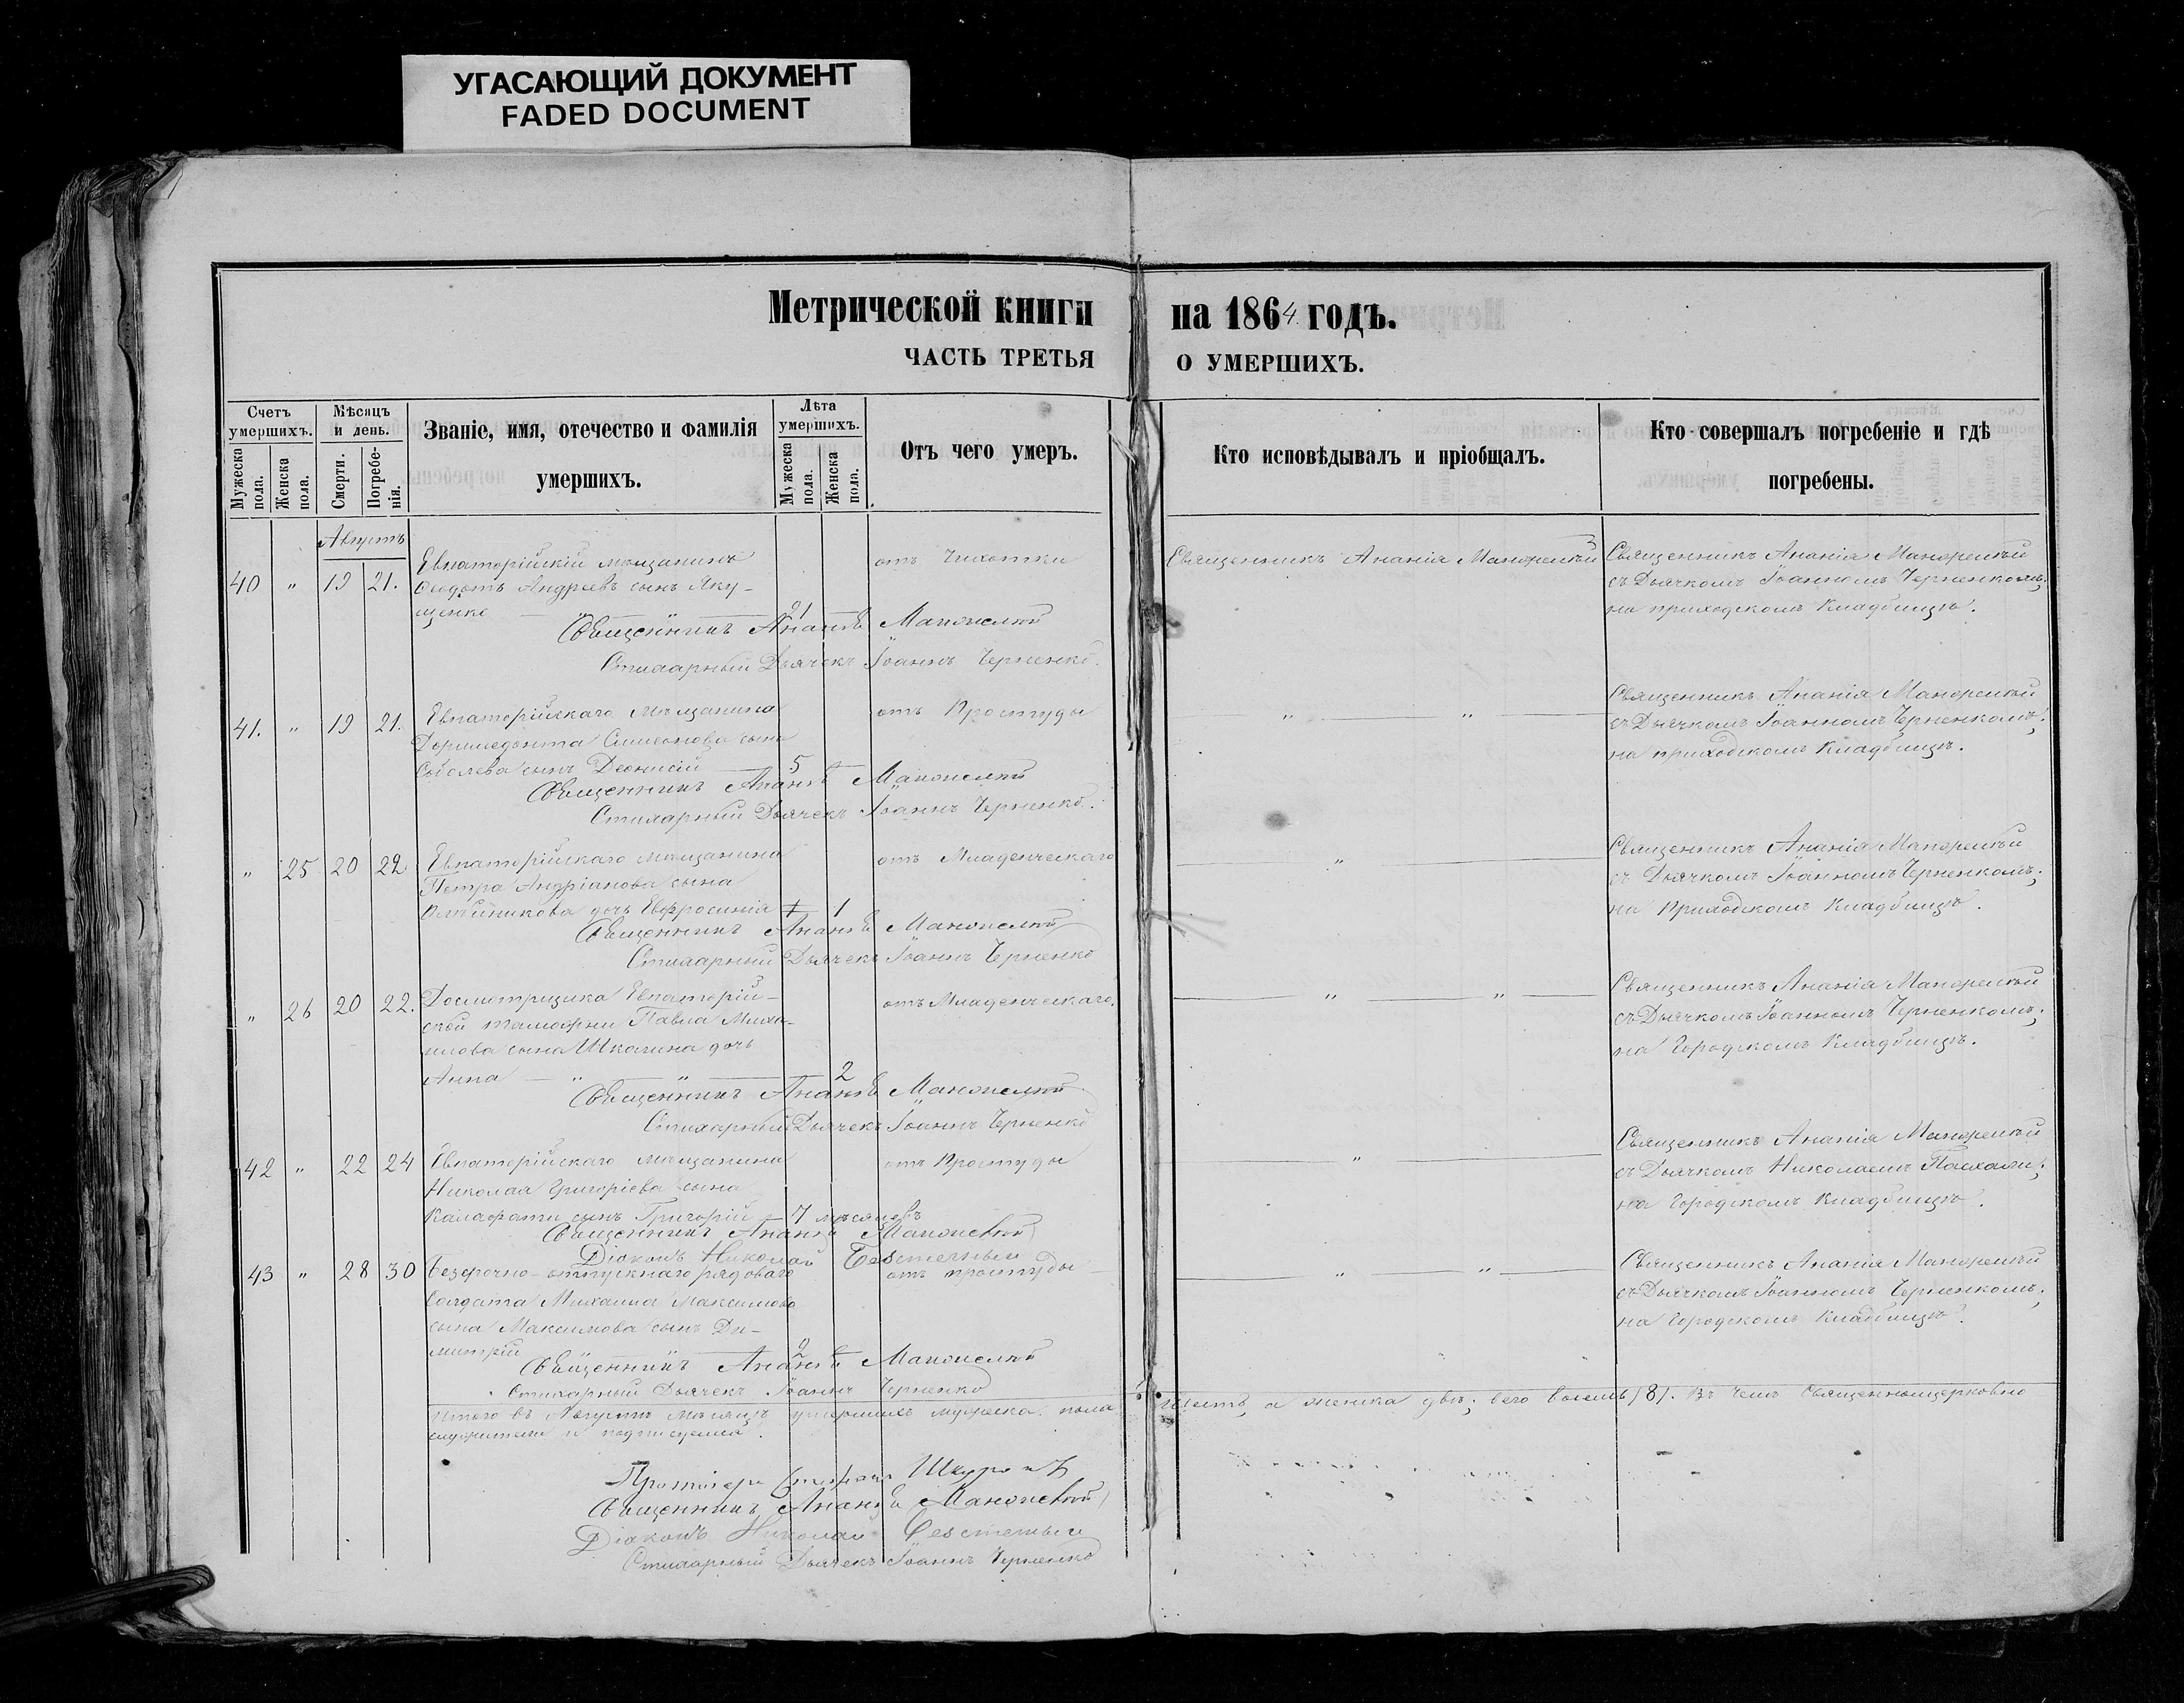 УГАСАЮЩИЙ ДОКУМЕНТ
FADED DOCUMENT
Метрической книги на 1864 годъ.
ЧАСТЬ ТРЕТЬЯ О УМЕРШИХЪ.
Счетъ умершихъ.
Мужеска пола.
Женска пола.
Мѣсяцъ и день.
Смерти.
Погребенія.
Званіе, имя, отечество и фамилія
умершихъ.
Лѣта умершихъ.
Мужеска пола.
Женска пола.
Отъ чего умеръ.
Кто исповѣдывалъ и пріобщалъ.
Кто совершалъ погребеніе и гдѣ
погребены.
Августъ
40 " 19 21.
Евпаторійскій мѣщанинъ
Ѳеодотъ Андреевъ сынъ Яку-
щенко — " — " — 21
отъ Чихотки
Священникъ Ананія
Священникъ Ананія
съ Дьячкомъ Іоанномъ Черненкомъ;
на приходскомъ Кладбищѣ.
Священникъ Ананія
Стихарный Дьячекъ Іоаннъ Черненко.
41. " 19 21.
Евпаторійскаго Мѣщанина
Доримедонта Симеонова сына
Соболева сынъ Діонисій — 5
отъ Простуды
" — "
Священникъ Ананія
съ Дьячкомъ Іоанномъ Черненкомъ;
на приходскомъ Кладбищѣ.
Священникъ Ананія
Стихарный Дьячекъ Іоаннъ Черненко.
" 25 20 22
Евпаторійскаго мѣщанина
Петра Андріанова сына
Олѣйникова дочь Евфросинія 1
отъ Младенческаго
"
Священникъ Ананія
съ Дьячкомъ Іоанномъ Черненкомъ;
на Приходскомъ Кладбищѣ.
Священникъ Ананія
Стихарный Дьячекъ Іоаннъ Черненко
" 26 20 22.
Досмотрщика Евпаторій-
ской таможни Павла Миха-
илова сына дочь
Анна — " — " — 2
отъ Младенческаго.
" — "
Священникъ Ананія
съ Дьячкомъ Іоанномъ Черненкомъ;
на Городскомъ Кладбищѣ.
Священникъ Ананія
Стихарный Дьячекъ Іоаннъ Черненко
42 " 22 24
Евпаторійскаго мѣщанина
Николая Григоріева сына
Калафати сынъ Григорій — 7 мѣсяцевъ
отъ Простуды
"
Священникъ Ананія
съ Дьячкомъ Николаемъ
на Городскомъ Кладбищѣ.
Священникъ Ананія
Діаконъ Николай
43 " 28 30
Безсрочно-отпускнаго рядоваго
Солдата Михаила Максимова
сына Максимова сынъ Ди-
митрій — 2
отъ простуды
" — "
Священникъ Ананія
съ Дьячкомъ Іоанномъ Черненкомъ;
на Городскомъ Кладбищѣ.
Священникъ Ананія
Стихарный Дьячекъ Іоаннъ Черненко
Итого въ Августѣ мѣсяцѣ умершихъ мужеска пола шесть, а женска двѣ; всего восемь /8/. Въ чемъ Священноцерковно
служители и подписуемся.
Протоіерей Стефанъ
Священникъ Ананія
Діаконъ Николай
Стихарный Дьячекъ Іоаннъ Черненко